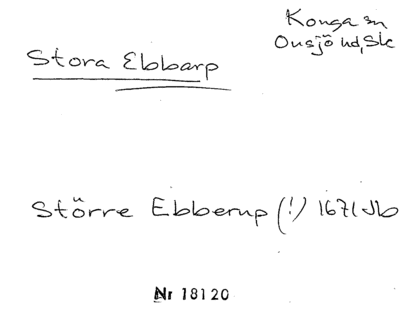 Konga sn
Onsjö hd, Sk
Stora Ebbarp
Större Ebberup (!) 1671 Jb
Nr 18120